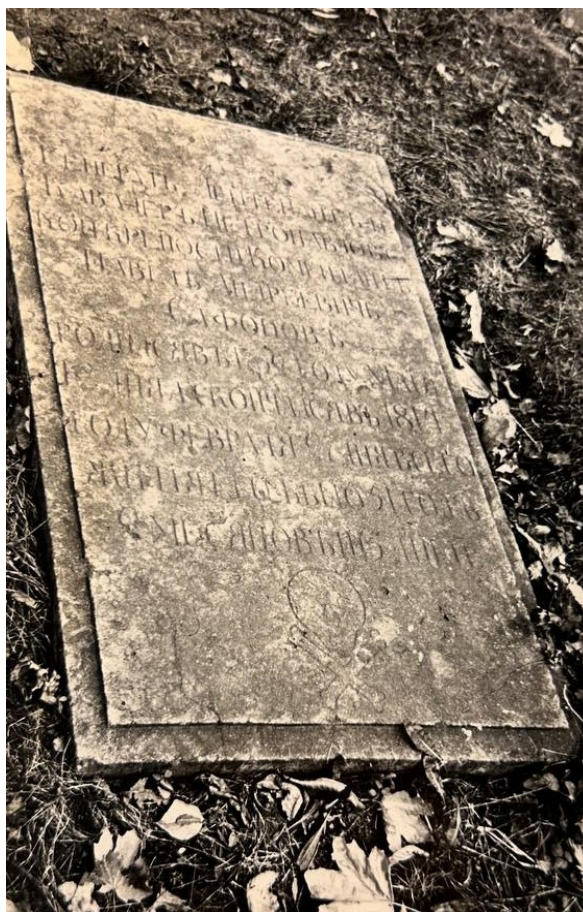 ГЕНЕРАЛЪ
КАВАЛЕРЪ ПЕТРОПАВЛОВС
КОЙ КРЕПОСТИ КОМЕНДАНТ
ПАВЕЛЪ АНДРЕЕВИЧЬ
САФОНОВЪ
РОДИЛСЯ ГОДА МАIЯ
ДНЯ А СКОНЧАЛСЯ ВЪ 1814
ГОДУ ФЕВРАЛЯ ДНЯ ВСЕГО
ЖИТІЯ ЕГО БЫЛО ГОДЪ
8 МЕСЯЦОВЪ ДНЕЙ